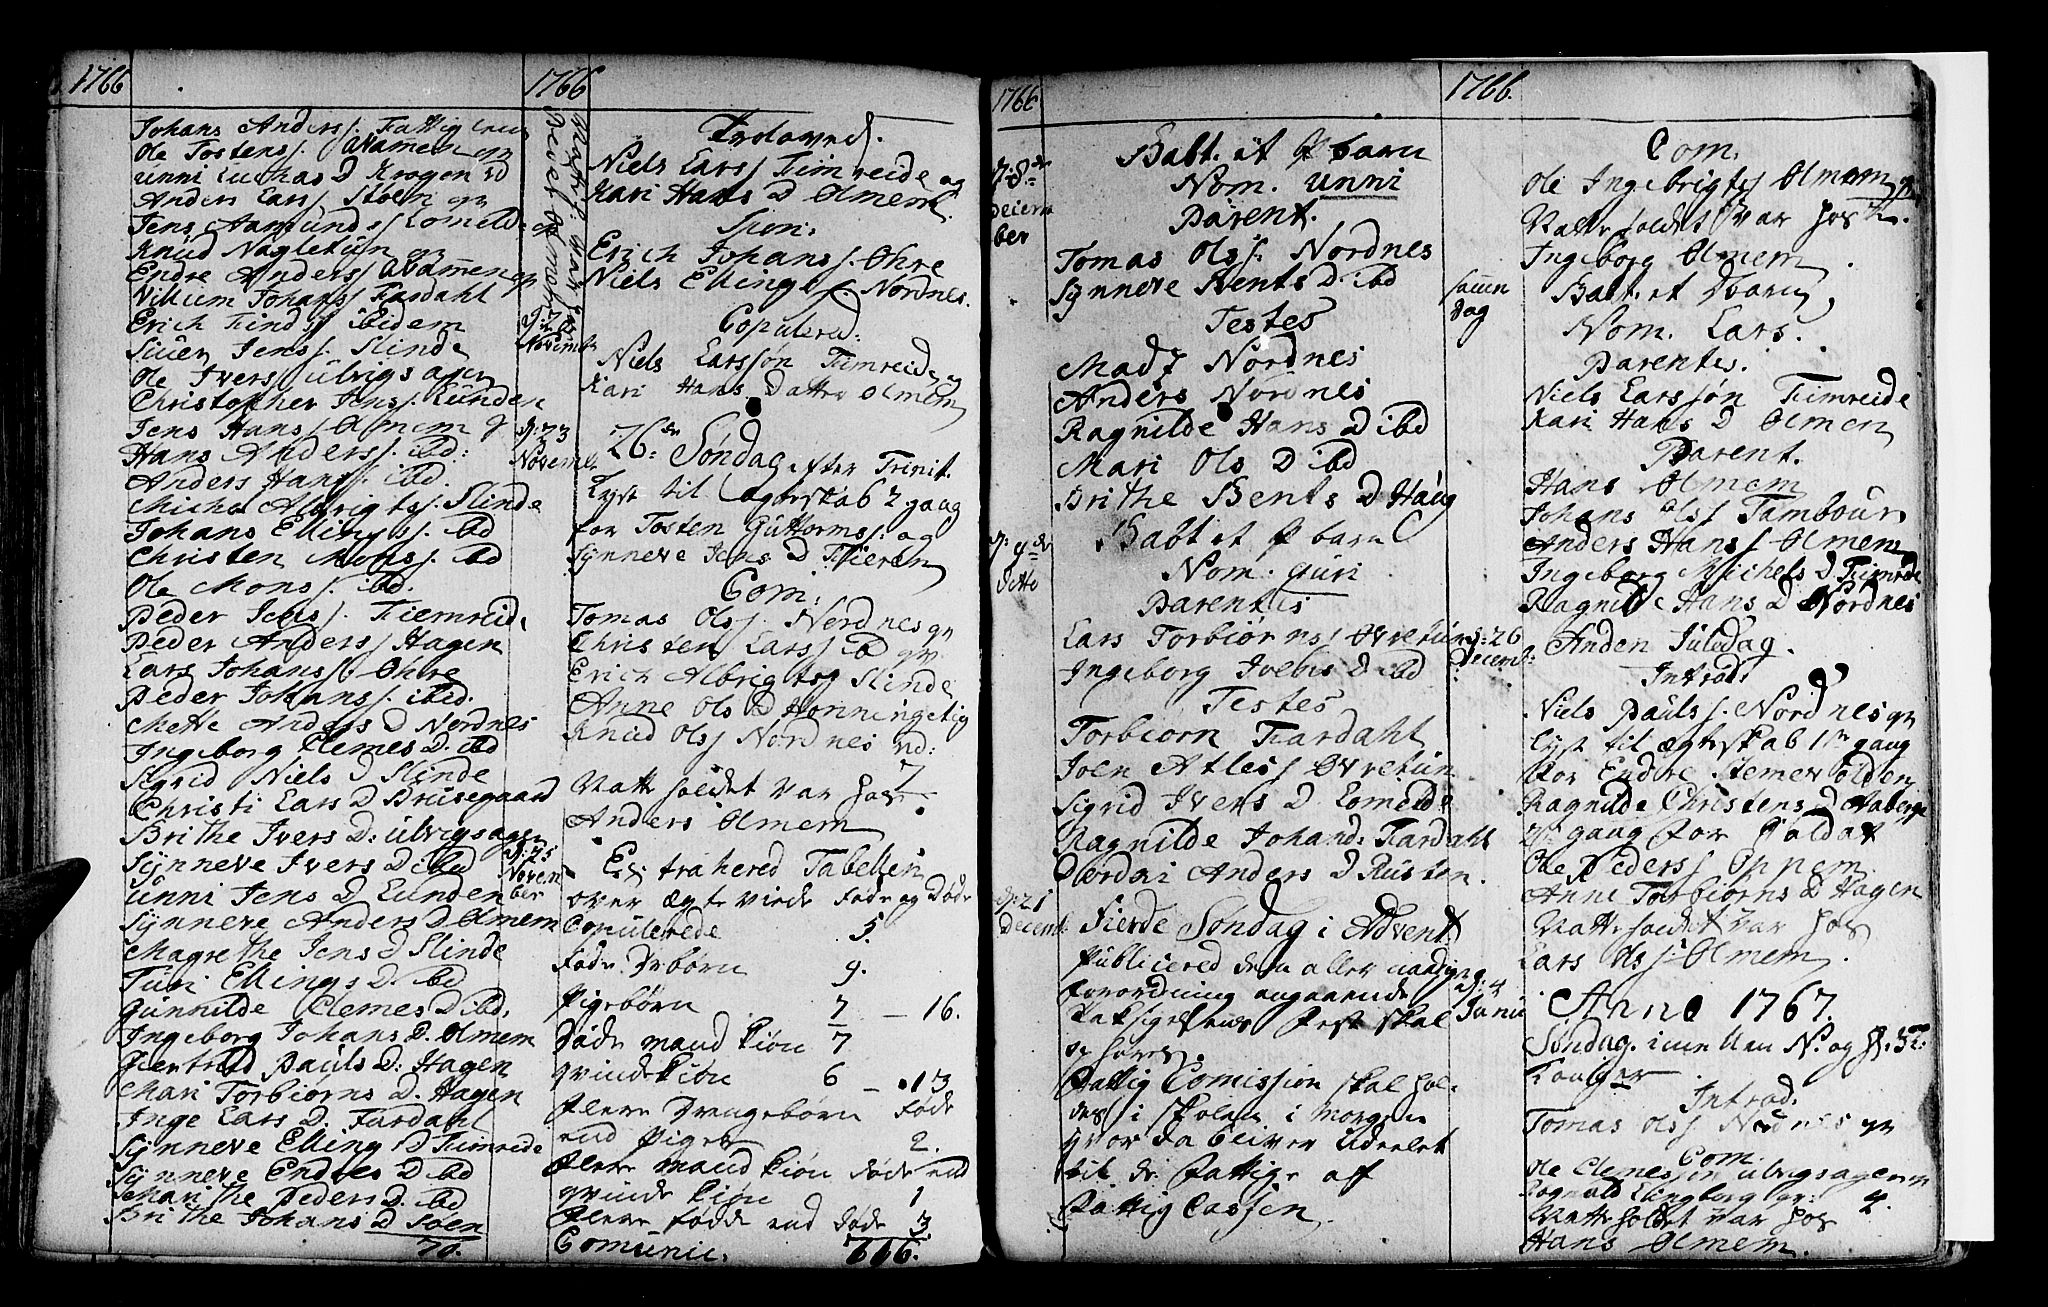 1766
Johans Anders S. Fattig
Ole Tostens S. Aamen qv
Unni Luchas D Kragen ℔
Anders Lars S Støen qv
Jens Aamunds S Lomelde
Knud Nagletun qv
Endre Anders S Aamen qv
Villum Johans S Fardahl
Erich Finds S ibidem
Siuer Jens S. Slinde
Ole Ivers S Ulvigsagen
Christopher Jens S. Lunden
Jens Hans S Olmem
Hans Anders S. ibd:
Anders Hans S. ibd.
Michel Albrigts S. Slinde
Johans Ellings S. ibd
Christen Mons S. ibd
Ole Mons S. ibd.
Peder Jens S. Tiemreide
Peder Anders S Hagen
Lars Johans S. Ohre
Peder Johans S. ibid.
Mette Anders D Nordnes
Ingeborg Clemes D. ibd
Sigrid Niels D Slinde
Christi Lars D Brusegaard
Brithe Ivers D: Ulvigsagen
Synneve Ivers D ibd
Unni Jens D Lunden
Synneve Anders D Olmem
Magrethe Jens D Slinde
Turi Ellings D. ibd
Gunnilde Clemes D ibd.
Ingeborg Johans D. Olmem
Giertrud Pauls D: Hagen
Mari Torbiørns D. Hagen
Inge Lars D. Fardahl
Synneve Elling D Timreide
Synneve Endres D ibd
Marithe Peders D. ibd
Brithe Johans D Søen
70.
1766
Trolowed.
Niels Lars S Timreide og
Kari Hans D Olmem.
Spon:
Erich Johans S. Ohre
Niels Ellings S. Nordnes.
Novemb
Copulered:
Niels Larssøn Timreide og
Kari Hans Datter Olmem
d: 23
Novemb
26de Søndag efter Trinit.
Lyst til ægteskab 2 gang
for Tosten Guttorms S. og
Synneve Jens D Fieren
Com:
Tomas Ols S. Nordnes qv
Christen Lars S ibd qv.
Erich Albrigts S Slinde
Anne Ols D Hønningetig
Knud Ols S Nordnes
7.
Natteholdet var hos
Anders Olmem
d: 25
Novem
ber
Extrahered Tabellen
over ægteviede Føde og Døde
Copulerede 5.
Føde Drbørn 9.
Pigebørn 7 — 16.
Døde mand kiøn 7
qvindekiøn 6 — 13
Flere Drengebørn Føde
end Piger 2.
Flere mand kiøn døde end
qvinde kiøn 1
Flere fødde end døde 3.
Comunic: 716.
1766
d. 8de
Decem
ber
Babt. et P barn
Nom. Unni
Parent.
Tomas Ols S. Nordnes
Synneve Bents D. ibd
Testes
Mads Nordnes
Anders Nordnes
Ragnilde Hans D ibd
Mari Ols D ibd
Brithe Bents D Haug
d. 9de
ditto
Babt et P barn
Nom. Guri
Parentes
Lars Torbiørns S Øvretun
Ingeborg Joens D ibd
Testes
Torbiorn Fardahl
Joen Atles S Øvretun
Sigrid Ivers D. Lomelde
Ragnilde Johans D: Fardahl
Durdei Anders D Rusten.
d: 21
Decemb
Fierde Søndag i Advent
Publicered den aller naadigste
forordning angaaende
Taksigelsens Fest skal
ophøre.
Fattig Comission skal hol-
des i Skolen i morgen
hvor da bliver Udeelet
til de Fattige af
Fattig Cassen.
1766.
Com.
Ole Ingebrigts S Olmem qv
Natteholdet var hos
Ingeborg Olmem
samme
dag
Babt. et D barn,
Nom. Lars.
Parentes.
Niels Larssøn Timreide
Kari Hans D Olmem
Parent.
Hans Olmem
Johans Ols S Tambour
Anders Hans S. Olmem
Ingeborg Michels D Timreide
Ragnilde Hans D Nordnes
d: 26
Decemb:
Anden Juledag.
Introd:
Niels Pauls S. Nordnes qv
Lyst til ægteskab 1te gang
for Endre Stemervolden
Ragnilde Christens D Aaberge
2de gang for Soldat
Ole Peders S Oppem
Anne Torbiørns D Hagen
Natteholdet var hos
Lars Ols S. Olmem
d: 4
Januar
Anno 1767.
Søndag imellem N. og H. 3K.
Konger.
Introd.
Tomas Ols S Nordnes qv
Com
Ole Clemessøn Ulvigsagen qv
Rognald Elingborg qv: 4.
Natteholdet var hos
Hans Olmem.